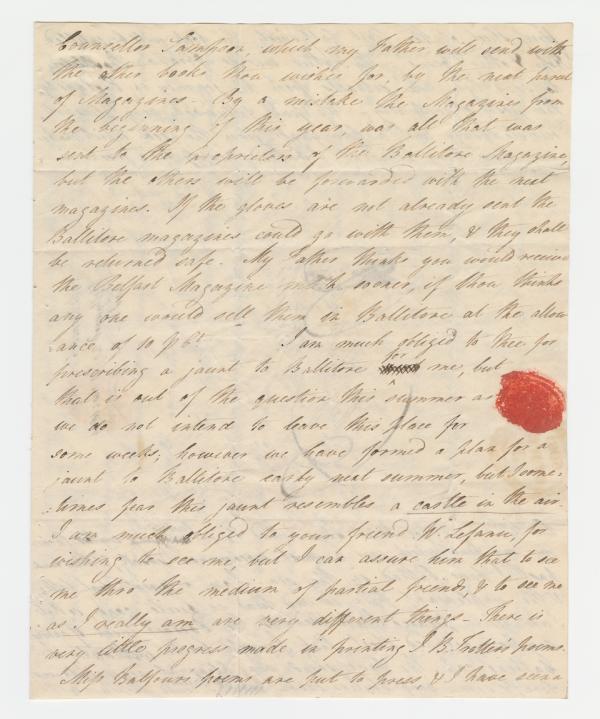 Counsellor Sampson, which my Father will send with
the other books thou wishes for, by the next parcel
of Magazines - By a mistake the Magazines from
the beginning of this year, was all that was
sent to the proprietors of the Ballitore Magazine,
but the others will be forwarded with the next
magazines. If the gloves are not already sent the
Ballitore magazines could go with them, & they shall
be returned safe. My Father thinks you would receive
the Belfast Magazine much sooner, if thou thinks
any one would sell them in Ballitore at the allow
ance of 10 p Ct. I am much obliged to thee for
prescribing a jaunt to Ballitore for me, but
that is out of the question this summer as
we do not intend to leave this place for
some weeks; however we have formed a plan for a
jaunt to Ballitore early next summer, but I some=
=times fear this jaunt resembles a castle in the air.
I am much obliged to your friend W. Lefanu, for
wishing to see me, but I can assure him that to see
me thro' the medium of partial friends, & to see me
as I really am are very different things - There is
very little progress made in printing J. B. Trotter's poems.
Miss Balfour's poems are put to press, & I have seen a